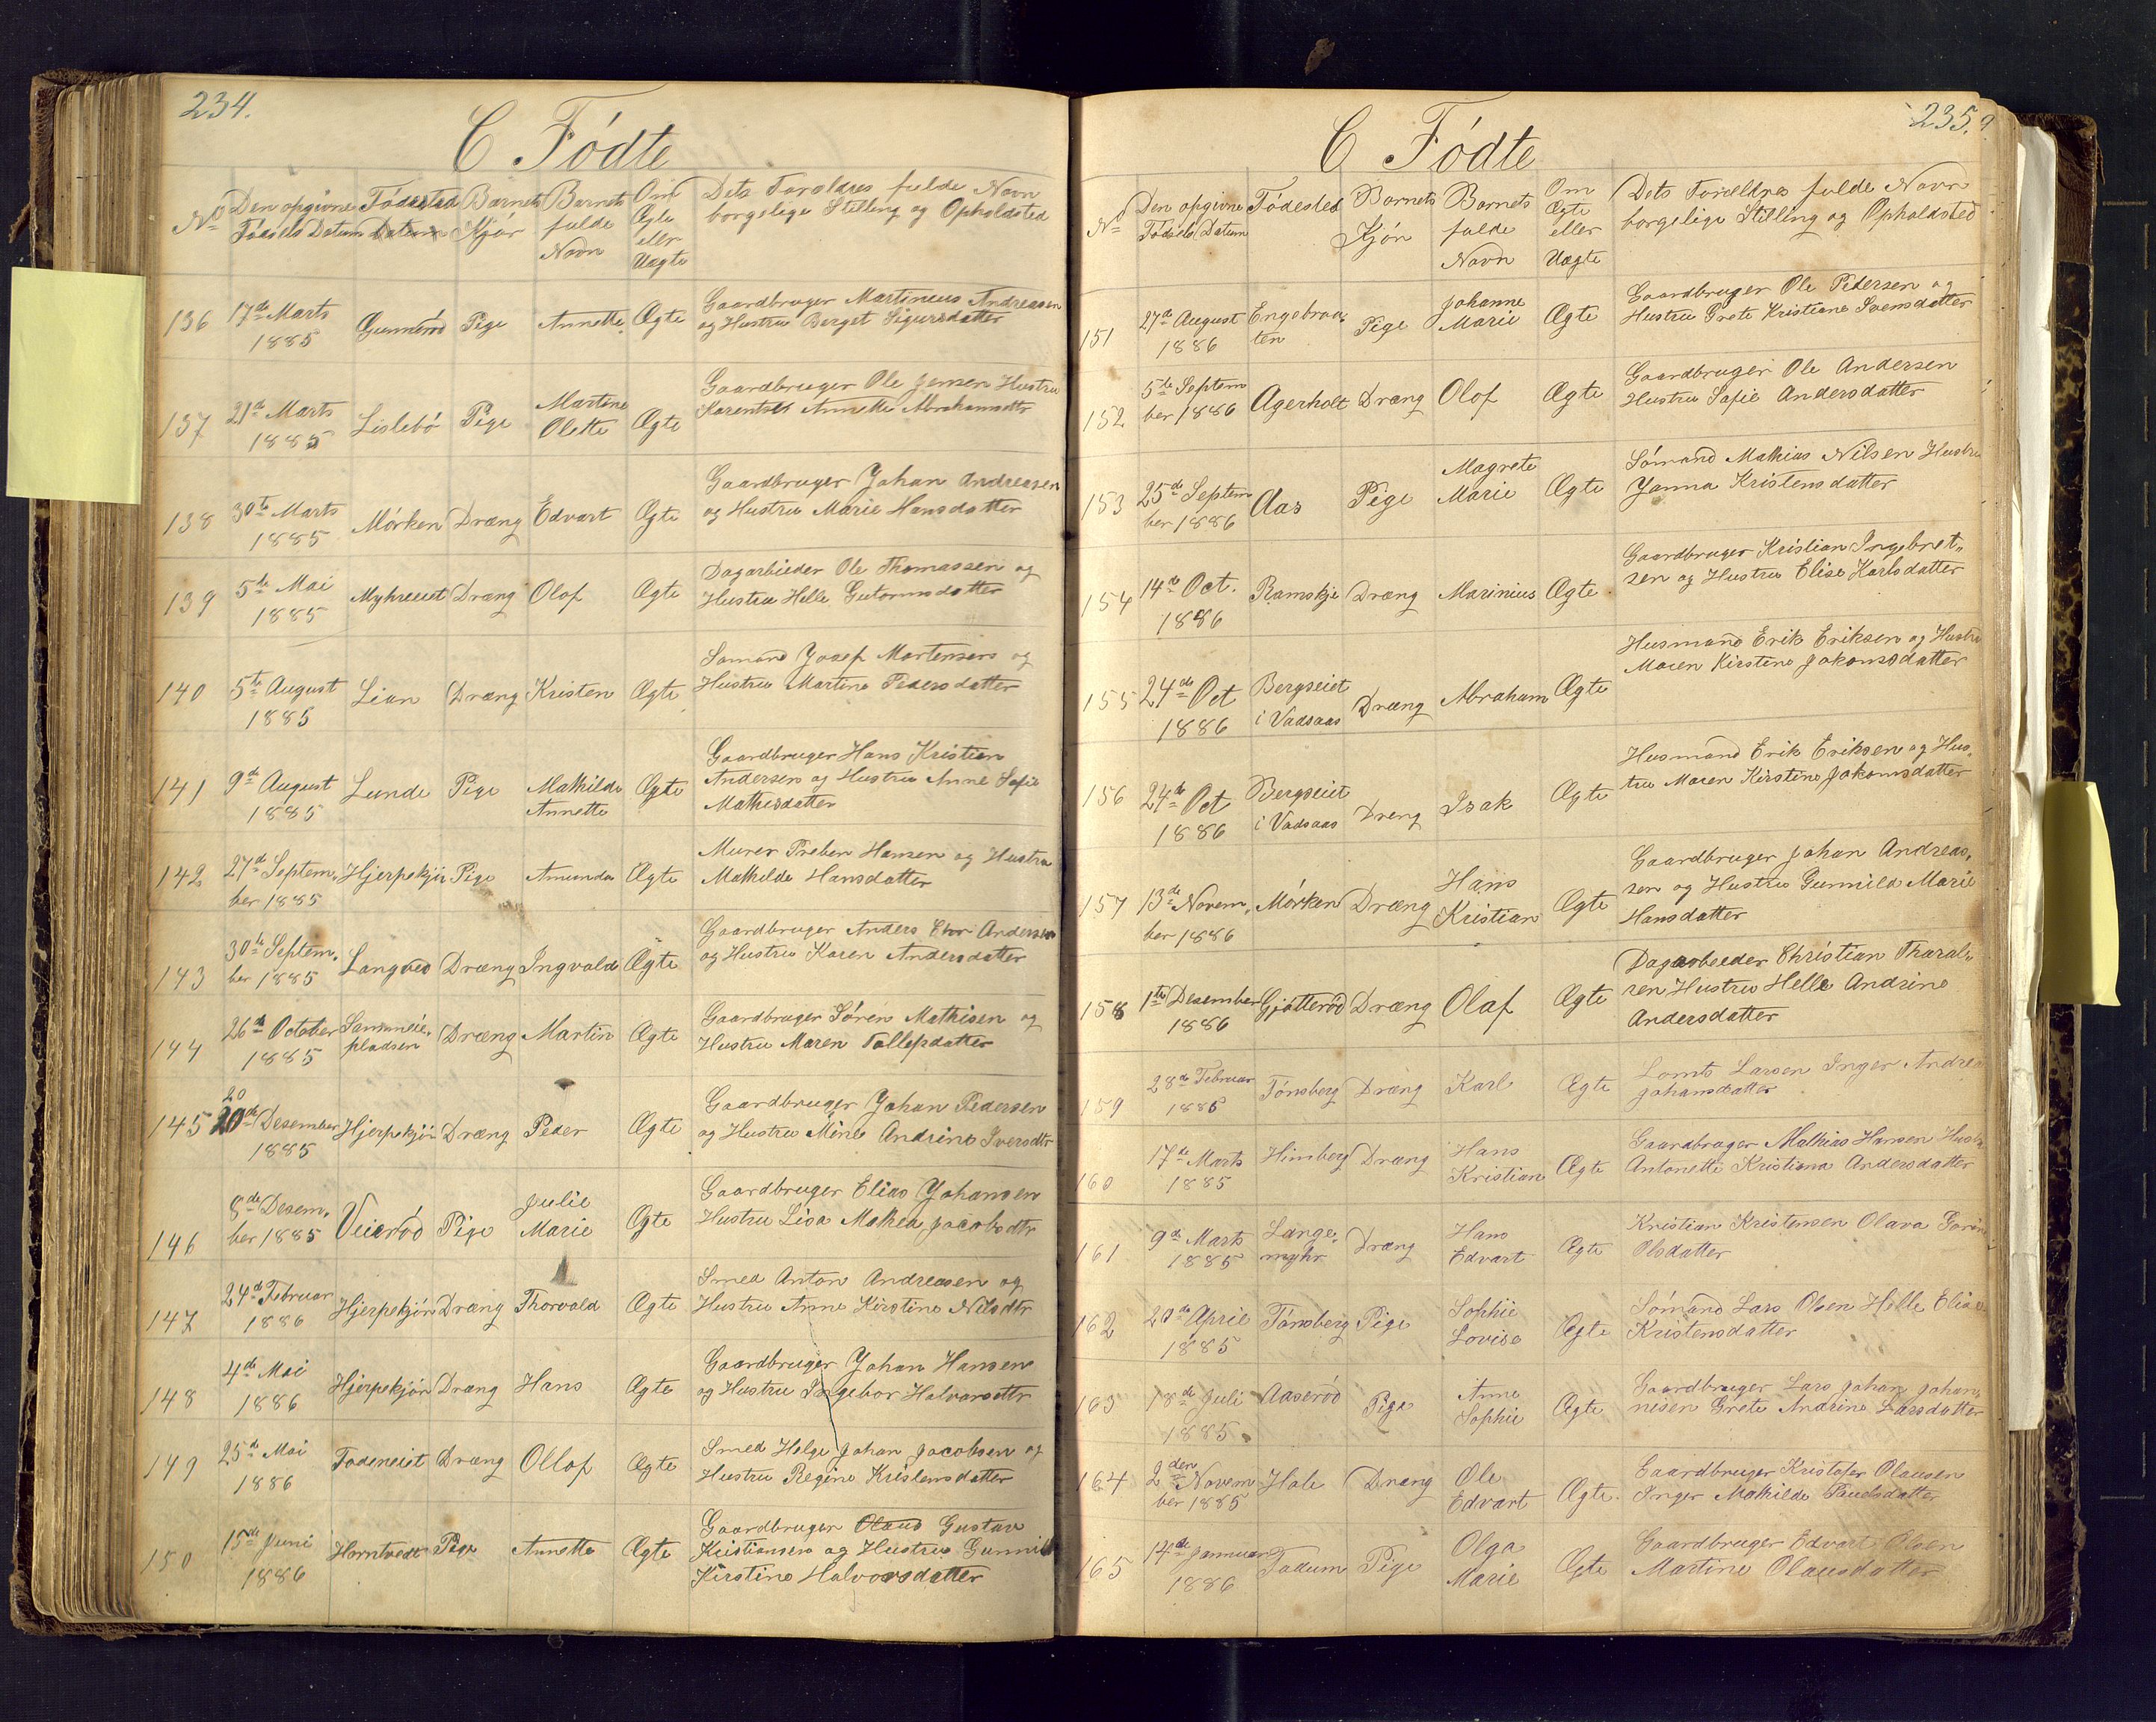 234.
C Födte
No
Den opgivne Födsels Datum
Födested Datum
Barnets Kjön
Barnets fulde Navn
Om Ægte eller Uægte
Dets Forældres fulde Navn
borgelige Stilling og Opholdsted
136 17de Marts 1885 Gunneröd Pige Annette Ægte Gaardbruger Martineus Andreasen
og Hustru Berget Sigursdatter
137 21de Marts 1885 Lislebö Pige Martine Olette Ægte Gaardbruger Ole Jensen Hustru
Annette Abrahamsdtr
138 30te Marts 1885 Mörken Dræng Edvart Ægte Gaardbruger Johan Andreasen
og Hustru Marie Hansdatter
139 5te Mai 1885 Myhreeiet Dræng Olof Ægte Dagarbieder Ole Thomassen og
Hustru Helle Gutormsdatter
140 5te August 1885 Lian Dræng Kristen Ægte Sömand Josef Mortensen og
Hustru Martine Pedersdatter
141 9de August 1885 Lunde Pige Mathilde Annette Ægte Gaardbruger Hans Kristian
Andersen og Hustru Anne Sofie
Mathisdatter
142 27de Septem- ber 1885 Hjerpekjön Pige Amunda Ægte Murer Preben Hansen og Hustru
Mathilde Hansdatter
143 30te Septem- ber 1885 Langved Dræng Ingvald Ægte Gaardbruger Anders Andersen
og Hustru Karen Andersdatter
144 26de October 1885 pladsen Dræng Martin Ægte Gaardbruger Sören Mathisen og
Hustru Maren Tollefsdatter
145 20 20de Desember 1885 Hjerpekjön Dræng Peder Ægte Gaardbruger Johan Pedersen
og Hustru Mine Andrine Iversdtr
146 8de Desem- ber 1885 Veieröd Pige Julie Marie Ægte Gaardbruger Elias Johansen
Hustru Lisa Mathea Jacobsdtr
147 24de Februar 1886 Hjerpekjön Dræng Thorvald Ægte Smed Anton Andreasen og
Hustru Anne Kirstine Nilsdtr
148 4de Mai 1886 Hjerpekjön Dræng Hans Ægte Gaardbruger Johan Hansen
og Hustru Ingebor Halvorsdtr
149 25de Mai 1886 Fodeneiet Dræng Ollof Ægte Smed Helge Johan Jacobsen og
Hustru Regine Kristensdatter
150 15de Juni 1886 Horntvedt Pige Annette Ægte Gaardbruger Olaus Gustav
Kristiansen og Hustru Gunnild
Kirstine Halvorsdatter
235.
C Födte
No
Den opgivne Födsels Datum
Födested
Barnets Kjön
Barnets fulde Navn
Om Ægte eller Uægte
Dets Forældres fulde Navn
borgelige Stilling og Opholdsted
151 27de August 1886 Engebraa- ten Pige Johanne Marie Ægte Gaardbruger Ole Pedersen og
Hustru Grete Kristiane Svensdatter
152 5te Septem ber 1886 Agerholt Dræng Olof Ægte Gaardbruger Ole Andersen
Hustru Sofie Andersdatter
153 25de Septem ber 1886 Aas Pige Magrete Marie Ægte Sömand Mathias Nilsen Hustru
Janna Kristensdatter
154 14de Oct. 1886 Ramskje Dræng Marinius Ægte Gaardbruger Kristian Ingebret-
sen og Hustru Elise Karlsdatter
155 24de Oct 1886 Bergseiet i Vadsaas Dræng Abraham Ægte Husmand Erik Eriksen og Hustru
Maren Kirstine Jakomsdatter
156 24de Oct 1886 Bergseiet i Vadsaas Dreng Isak Ægte Husmand Erik Eriksen og Hus-
tru Maren Kirstine Jakomsdatter
157 13de Novem- ber 1886 Mörken Dræng Hans Kristian Ægte Gaardbruger Johan Andreas-
sen og Hustru Gunnild Marie
Hansdatter
158 1te Desember 1886 Gjötteröd Dræng Olaf Ægte Dagarbeeder Christian Tharal-
sen Hustru Helle Andrine
Andersdatter
159 28de Februar 1885 Tönsberg Dræng Karl Ægte Lomts Larsen Inger Andrea
Johansdatter
160 17de Marts 1885 Himberg Dræng Hans Kristian Ægte Gaardbruger Mathias Hansen Hustru
Antonette Kristiana Andersdatter
161 9de Marts 1885 Lange- myhr Dræng Hans Edvart Ægte Kristian Kristensen Olava
Olsdatter
162 20de April 1885 Tönsberg Pige Sophie Lovise Ægte Sömand Lars Olsen Helle Elise
Kristensdatter
163 18de Juli 1885 Aaseröd Pige Anne Sophie Ægte Gaardbruger Lars Johan Johan-
nesen Grete Andrine Larsdatter
164 2den Novem ber 1885 Hole Dræng Ole Edvart Ægte Gaardbruger Kristofer Olausen
Inger Mathilde Paulsdatter
165 14de Januar 1886 Fadum Pige Olga Marie Ægte Gaardbruger Edvart Olsen
Martine Olausdatter